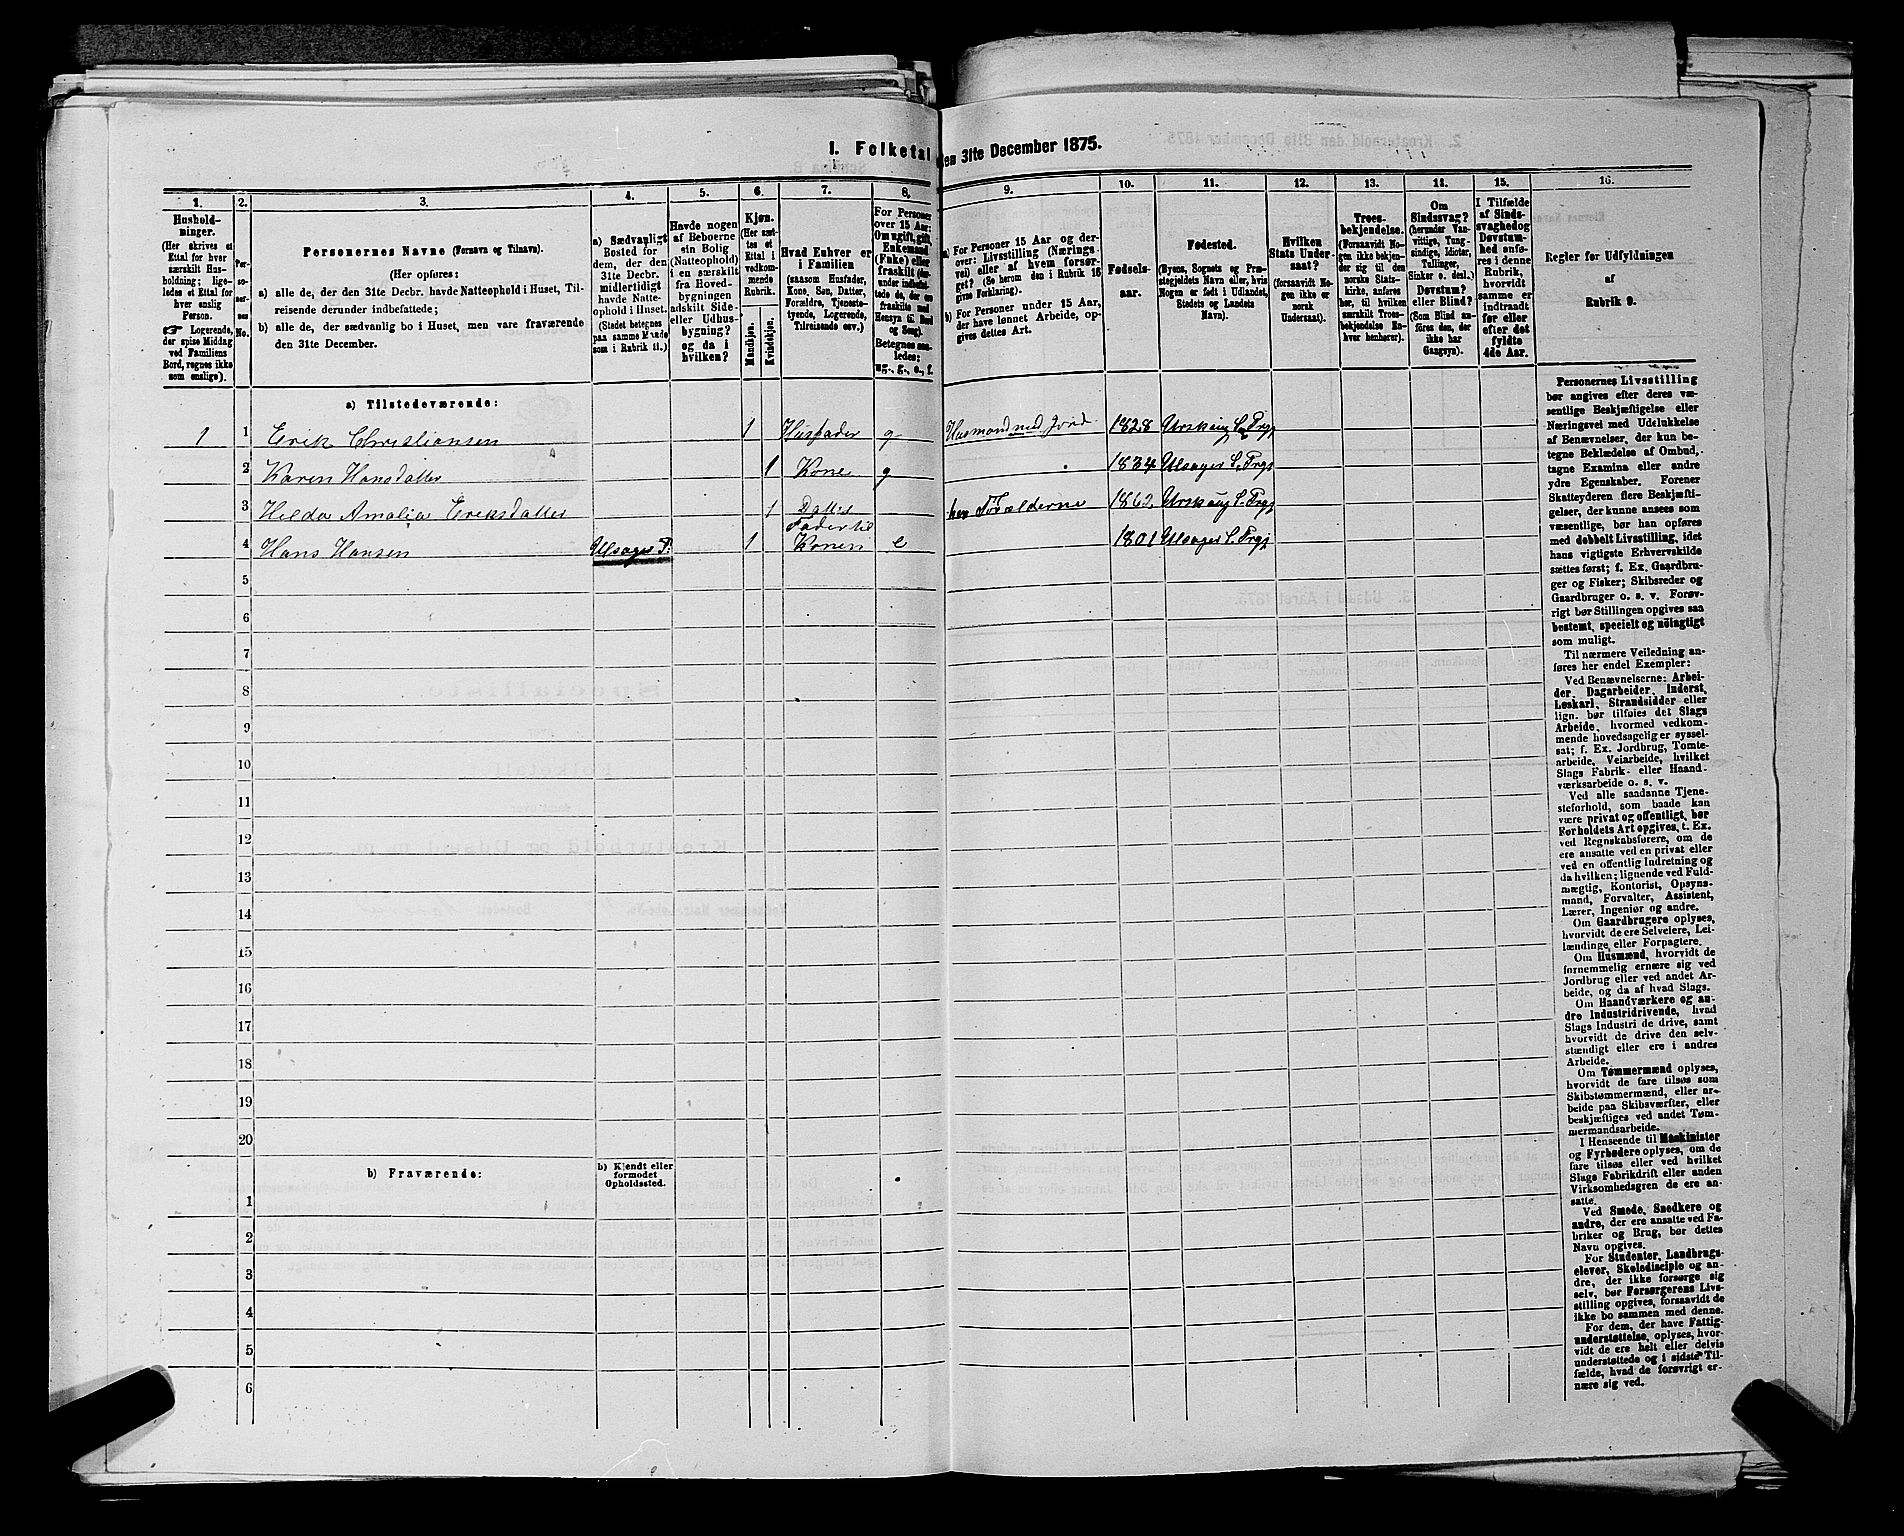 I. Folketal
den 31te December 1875.
1.
2.
3.
4.
5.
6.
7.
8.
9.
10.
11.
12.
13.
14.
15.
16.
Hushold-
ninger.
(Her skrives et
Ettal for hver
særskilt Hus-
holdning; lige-
ledes et Ettal for
hver enslig
Person.
☞ Logerende,
der spise Middag
ved Familiens
Bord, regnes ikke
som enslige).
Per-
so-
ner-
nes
No.
Personernes Navne (Fornavn og Tilnavn).
(Her opføres:
a) alle de, der den 31te Decbr. havde Natteophold i Huset, Til-
reisende derunder indbefattede;
b) alle de, der sædvanlig bo i Huset, men vare fraværende
den 31te December.
a) Sædvanligt
Bosted for
dem, der den
31te Decbr.
midlertidigt
havde Natte-
ophold i Huset.
(Stedet betegnes
paa samme Maade
som i Rubrik 11.)
Havde nogen
af Beboerne
sin Bolig
(Natteophold)
i en særskilt
fra Hoved-
bygningen
adskilt Side-
eller Udhus-
bygning?
og da i
hvilken?
Kjøn.
(Her sæt-
tes et
Ettal i
vedkom-
mende
Rubrik.
Mandkjøn.
Kvindekjøn.
Hvad Enhver er
i Familien
(saasom Husfader,
Kone, Søn, Datter,
Forældre, Tjeneste-
tyende, Logerende,
Tilreisende osv.)
For Personer
over 15 Aar:
Om ugift, gift,
Enkemand
(Enke) eller
fraskilt (der-
under indbefat-
tede de, der ere
fraskilte med
Hensyn til Bord
og Seng).
Betegnes saa-
ledes:
ug., g., e., f.
a) For Personer 15 Aar og der-
over: Livsstilling (Nærings-
vei) eller af hvem forsør-
get? (Se herom den i Rubrik 16
givne Forklaring).
b) For Personer under 15 Aar,
der have lønnet Arbeide, op-
gives dettes Art.
Fødsels-
aar.
Fødested.
(Byens, Sognets og Præ-
stegjeldets Navn eller, hvis
Nogen er født i Udlandet,
Stedets og Landets
Navn).
Hvilken
Stats Under-
saat?
(forsaavidt No-
gen ikke er
norsk
Undersaat).
Troes-
bekjendelse.
(Forsaavidt No-
gen ikke bekjen-
der sig til den
norske Stats-
kirke, anføres
her, til hvilken
særskilt Troes-
bekjendelse En-
hver henhører).
Om
Sindssvag?
(herunder Van-
vittige, Tung-
sindige, Idioter,
Tullinger,
Sinker o. desl.)
Døvstum?
eller Blind?
(Som Blind an-
føres den, der
ikke har
Gangsyn).
I Tilfælde
af Sinds-
svaghed og
Døvstum-
hed anfø-
res i denne
Rubrik,
hvorvidt
samme er
indtraadt
før eller
efter det
fyldte
4de Aar.
Regler for Udfyldningen
af
Rubrik 9.
a) Tilstedeværende:
1 1 Erik Christiansen 1 Husfader g Husmand med Jord 1828 Urskoug S. Prgj
2 Karen Hansdatter 1 Kone g 1834 Ulsager S. Prgj
3 Hilda Amalia Eriksdatter 1 Datter Forældrene 1862 Urskoug S. Prgj
Fader til
4 Hans Hansen Ulsager P. 1 Konen e 1801 Ulsager S. Prgj
5
6
7
8
9
10
11
12
13
14
15
16
17
18
19
20
b) Fraværende:
b) Kjendt eller
formodet
Opholdssted.
1
2
3
4
5
6
Personernes Livsstilling
bør angives efter deres væ-
sentlige Beskjæftigelse eller
Næringsvei med Udelukkelse
af Benævnelser, der kun be-
tegne Beklædelse af Ombud,
tagne Examina eller andre
ydre Egenskaber. Forener
Skatteyderen flere Beskjæfti-
gelser, der kunne ansees som
væsentlige, bør han opføres
med dobbelt Livsstilling, idet
hans vigtigste Erhvervskilde
sættes først; f. Ex. Gaardbru-
ger og Fisker; Skibsreder og
Gaardbruger o. s. v. Forøv-
rigt bør Stillingen opgives saa
bestemt, specielt og nøiagtigt
som muligt.
Til nærmere Veiledning an-
føres her endel Exempler:
Ved Benævnelserne: Arbei-
der, Dagarbeider, Inderst,
Løskarl, Strandsidder eller
lign. bør tilføies det Slags
Arbeide, hvormed vedkom-
mende hovedsagelig er syssel-
sat; f. Ex. Jordbrug, Tomte-
arbeide, Veiarbeide, hvilket
Slags Fabrik- eller Haand-
værksarbeide o. s. v.
Ved alle saadanne Tjene-
steforhold, som baade kan
være privat og offentligt, bør
Forholdets Art opgives, t. Ex.
ved Regnskabsførere, om de
ere ansatte ved en privat eller
ved en offentlig Indretning og
da hvilken; lignende ved Fuld-
mægtig, Kontorist, Opsyns-
mand, Forvalter, Assistent,
Lærer, Ingeniør og andre.
Om Gaardbrugere oplyses,
hvorvidt de ere Selveiere, Lei-
lændinge eller Forpagtere.
Om Husmænd, hvorvidt de
fornemmelig ernære sig ved
Jordbrug eller ved andet Ar-
beide, og da af hvad Slags.
Om Haandværkere og an-
dre Industridrivende, hvad
Slags Industri de drive, samt
hvorvidt de drive den selv-
stændigt eller ere i andres
Arbeide.
Om Tømmermænd oplyses,
hvorvidt de fare tilsøs som
Skibstømmermænd, eller ar-
beide paa Skibsværfter, eller
beskjæftiges ved andet Tøm-
mermandsarbeide.
I Henseende til Maskinister
og Fyrbødere oplyses, om de
fare tilsøs eller ved hvilket
Slags Fabrikdrift eller anden
Virksomhedsgren de ere an-
satte.
Ved Smede, Snedkere og
andre, der ere ansatte ved Fa-
briker og Brug, bør dettes
Navn opgives.
For Studenter, Landbrugs-
elever, Skoledisciple og an-
dre, der ikke forsørge sig
selv, bør Forsørgerens Livs-
stilling opgives, forsaavidt de
ikke bo sammen med denne.
For dem, der have Fattig-
understøttelse, oplyses, hvor-
vidt de ere helt eller delvis
understøttede og i sidste Til-
fælde, hvad de forøvrigt er-
nære sig ved.